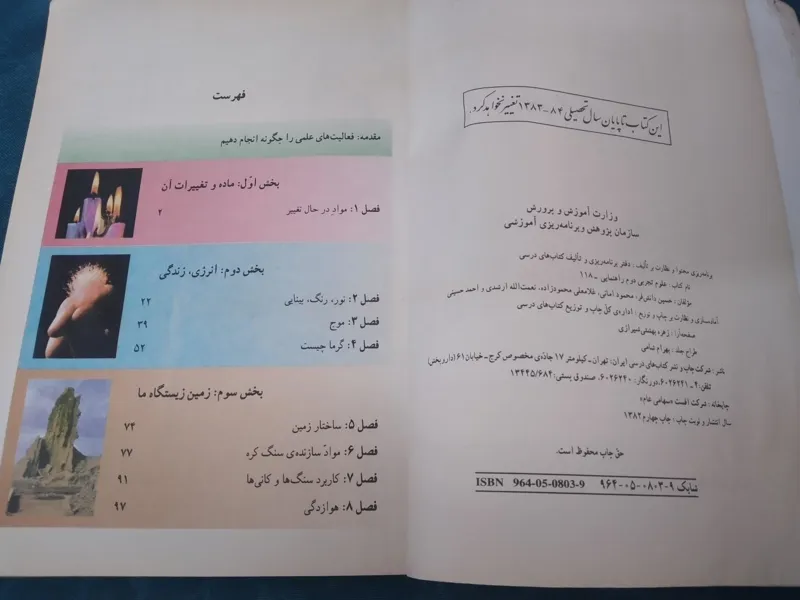 این کتاب تا پایان سال تحصیلی ۸۴-۱۳۸۳ تغییر نخواهد کرد.
وزارت آموزش و پرورش
سازمان پژوهش و برنامه‌ریزی آموزشی
برنامه‌ریزی محتوا و نظارت بر تألیف: دفتر برنامه‌ریزی و تألیف کتاب‌های درسی
نام کتاب: علوم تجربی دوم راهنمایی - ۱۱۸
مؤلفان: حسین دانش‌فر، محمود امانی، غلامعلی محمودزاده، نعمت‌الله ارشدی و احمد حسینی
آماده‌سازی و نظارت بر چاپ و توزیع: اداره‌ی کلّ چاپ و توزیع کتاب‌های درسی
صفحه‌آرا: زهره بهشتی‌شیرازی
طراح جلد: بهرام شامی
ناشر: شرکت چاپ و نشر کتاب‌های درسی ایران: تهران - کیلومتر ۱۷ جاده‌ی مخصوص کرج - خیابان ۶۱ (داروپخش)
تلفن: ۴-۶۰۲۶۲۲۱، دورنگار: ۶۰۲۶۲۴۰، صندوق پستی: ۱۳۴۴۵/۶۸۴
چاپخانه: شرکت افست «سهامی عام»
سال انتشار و نوبت چاپ: چاپ چهارم ۱۳۸۲
حق چاپ محفوظ است.
شابک ۹-۰۸۰۳-۰۵-۹۶۴ ISBN 964-05-0803-9
فهرست
مقدمه: فعالیت‌های علمی را چگونه انجام دهیم
بخش اوّل: ماده و تغییرات آن
فصل ۱: مواد در حال تغییر ۲
بخش دوم: انرژی، زندگی
فصل ۲: نور، رنگ، بینایی ۲۲
فصل ۳: موج ۳۹
فصل ۴: گرما چیست ۵۲
بخش سوم: زمین زیستگاه ما
فصل ۵: ساختار زمین ۷۴
فصل ۶: موادّ سازنده‌ی سنگ کره ۷۷
فصل ۷: کاربرد سنگ‌ها و کانی‌ها ۹۱
فصل ۸: هوازدگی ۹۷